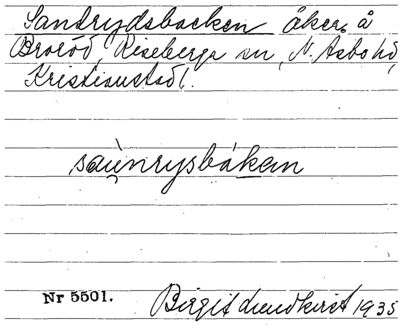 Sandrydsbacken åker å
Broröd, Riseberga sn, N. Åsbo hd,
Kristianstad l.
saùnrysbákan
Nr 5501.
Birgit Lundkvist 1935